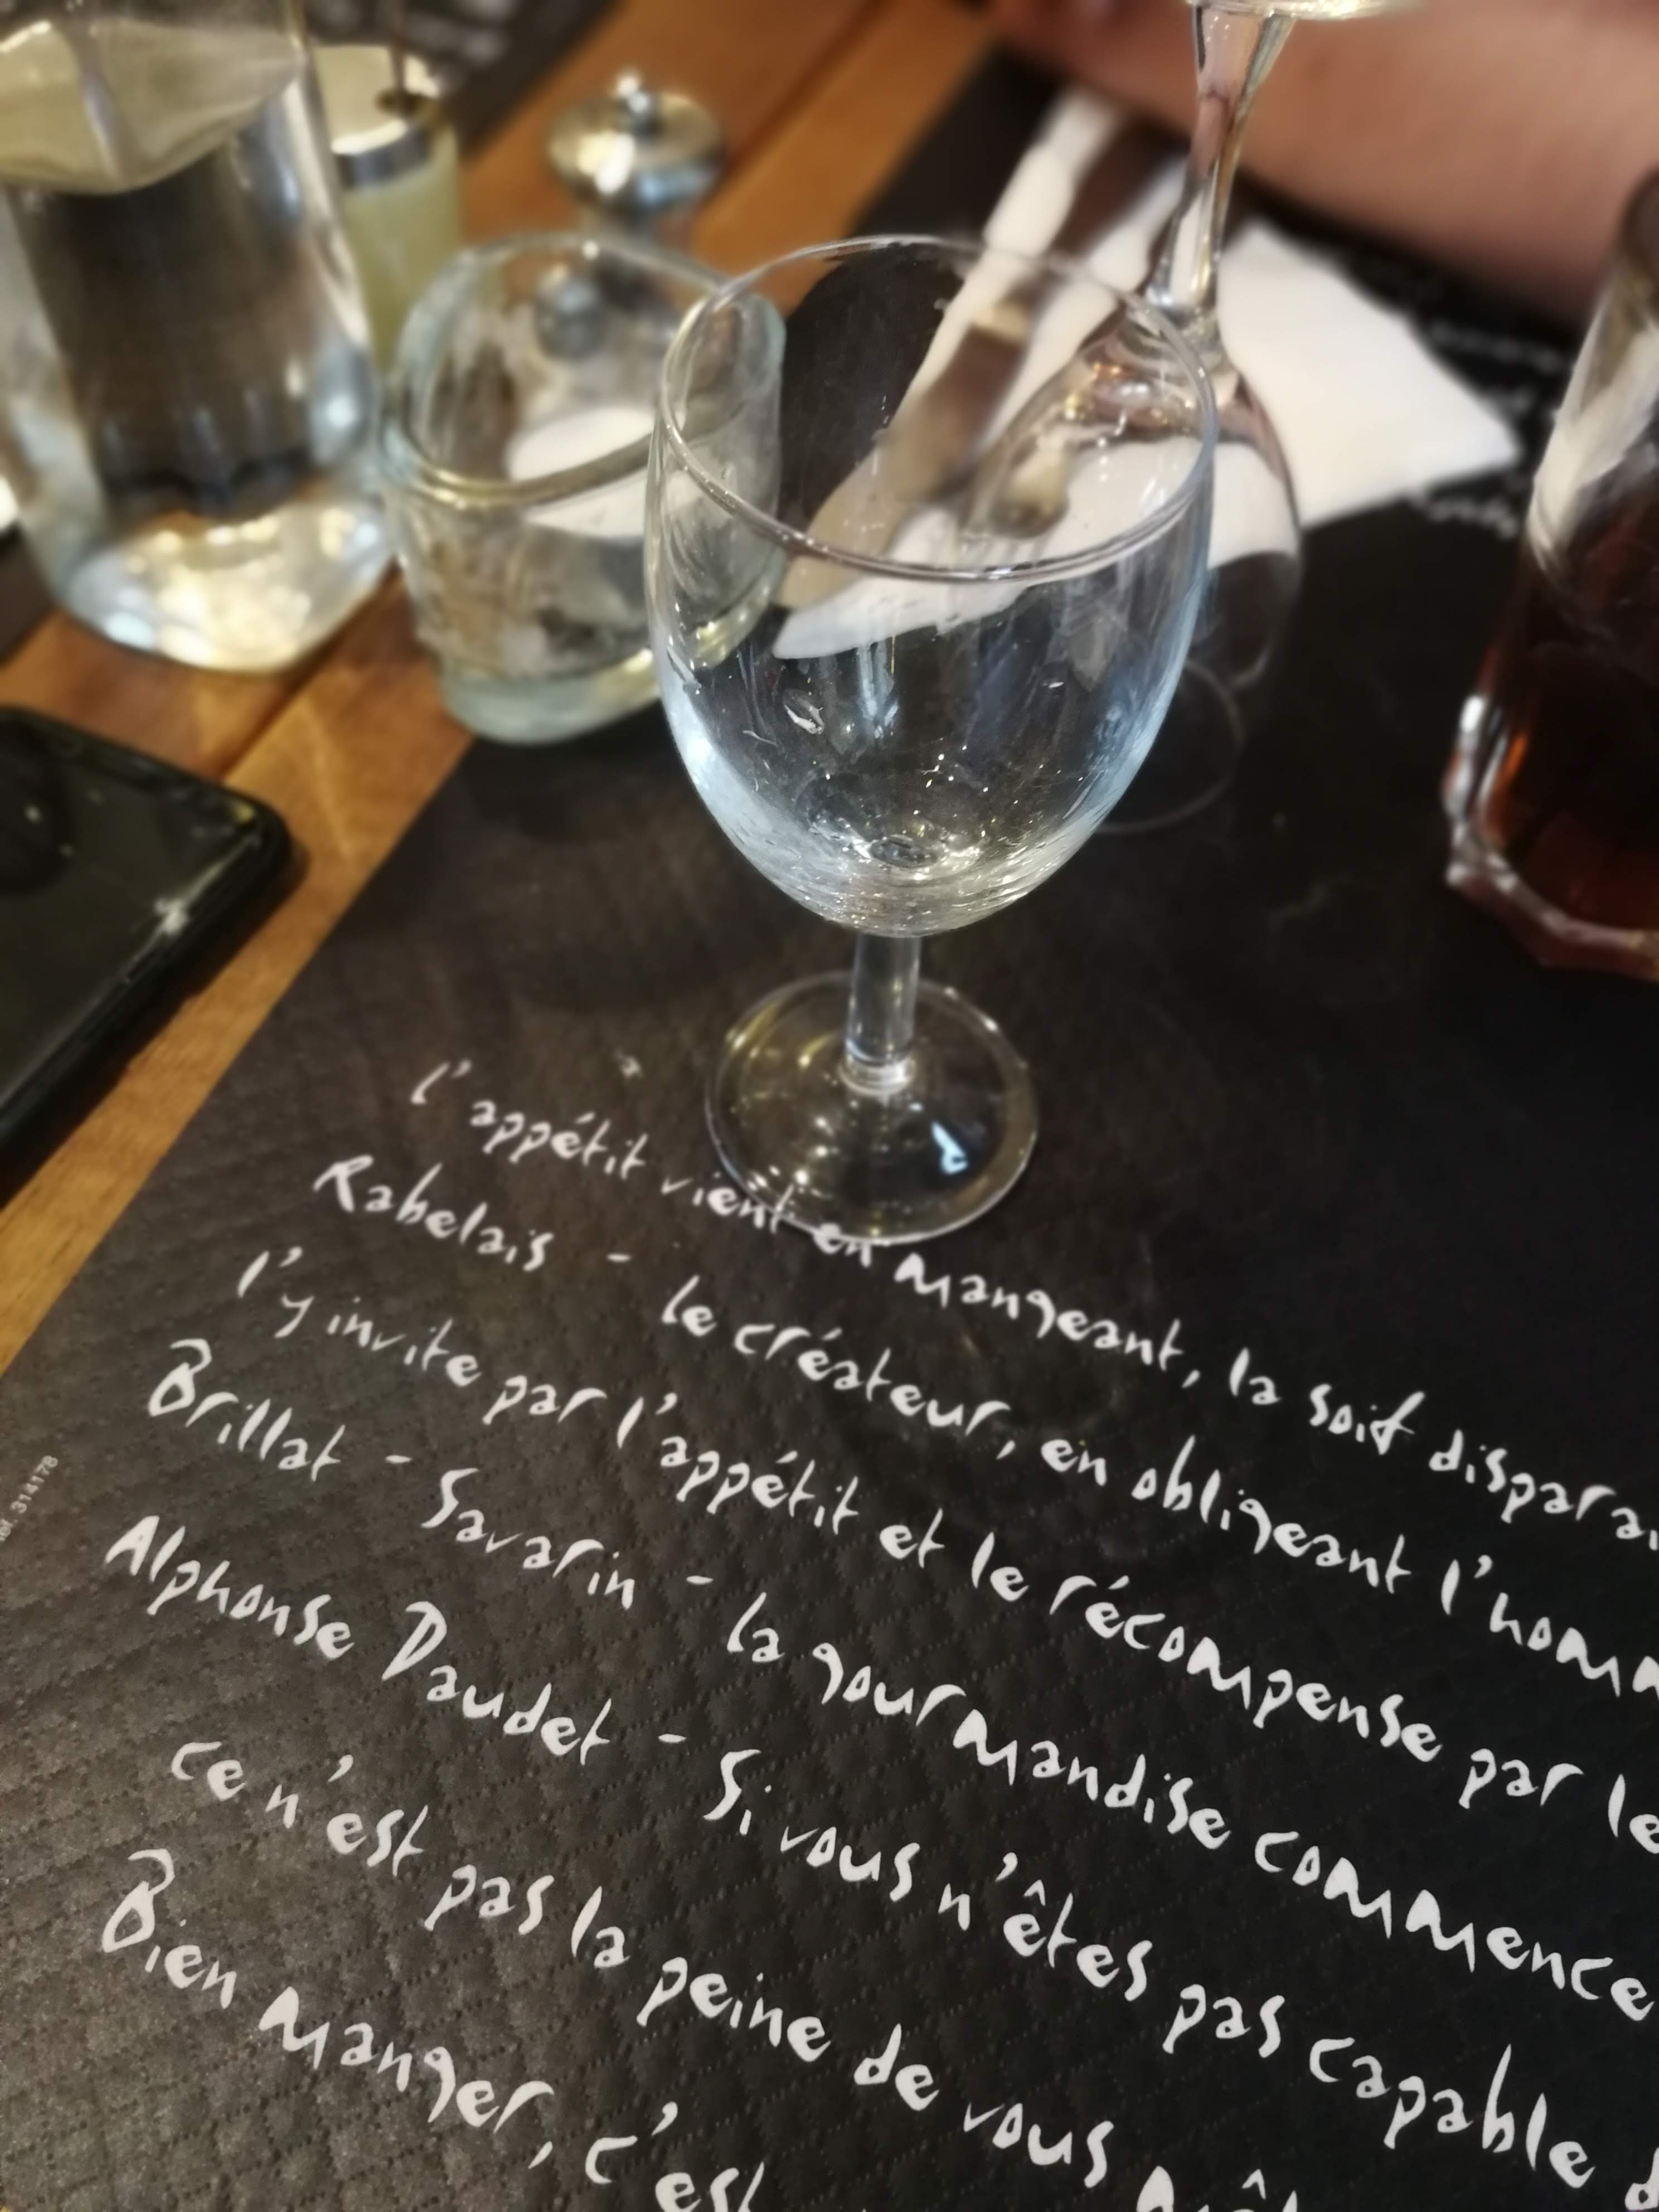 l'appétit vient en mangeant, la soif disparai
Rabelais - le créateur, en obligeant l'homm
l'y invite par l'appétit et le récompense par le
Brillat - Savarin - la gourmandise commence
Alphonse Daudet - Si vous n'êtes pas capable d
ce n'est pas la peine de vous
Bien manger, c'est
ref. 314178